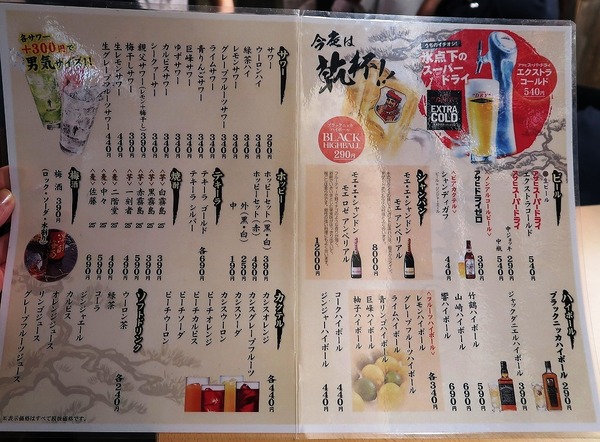 今夜は
乾杯!!
うちのイチオシ!
氷点下の
スーパー
ドライ
アサヒスーパードライ
エクストラ
コールド
540円
EXTRA
COLD
BLACK
HIGHBALL
290円
ビール
アサヒスーパードライ
エクストラコールド 540円
アサヒスーパードライ
中ジョッキ 490円
中瓶 540円
ノンアルコールビール
アサヒドライゼロ 390円
ビアカクテル
シャンディガフ 440円
シャンパン
モエ・エ・シャンドン
モエ アンペリアル
8000円
モエ・エ・シャンドン
モエ ロゼ アンペリアル
12000円
ハイボール
ブラックニッカハイボール 290円
ジャックダニエルハイボール 390円
竹鶴ハイボール 590円
山崎ハイボール 690円
響ハイボール 690円
フルーツハイボール
レモンハイボール
グレープフルーツハイボール
ライムハイボール
青リンゴハイボール
巨峰ハイボール
柚子ハイボール
各340円
コークハイボール 440円
ジンジャーハイボール 440円
各サワー
+300円で
男気サイズ!!
サワー
サワー 290円
ウーロンハイ 340円
緑茶ハイ 340円
レモンサワー 340円
グレープフルーツサワー 340円
ライムサワー 340円
青りんごサワー 340円
巨峰サワー 340円
ゆずサワー 340円
カルピスサワー 340円
シークァーサーサワー 340円
親父サワー(レモン+梅干し) 390円
梅干しサワー 390円
生レモンサワー 440円
生グレープフルーツサワー 440円
ホッピー
ホッピーセット(黒・白) 490円
ホッピーセット(赤) 570円
外(黒・白) 290円
中 190円
テキーラ
テキーラ ゴールド
テキーラ シルバー
各690円
焼酎
<芋>白霧島 390円
<芋>黒霧島 390円
<芋>赤霧島 590円
<芋>一刻者 490円
<麦>二階堂 490円
<麦>中々 590円
<麦>佐藤 690円
梅酒
梅酒 390円
(ロック・ソーダ・水割り)
カクテル
カシスオレンジ
カシスグレープフルーツ
カシスソーダ
カシスウーロン
ピーチオレンジ
ピーチカルピス
ピーチソーダ
ピーチウーロン
各440円
ソフトドリンク
ウーロン茶
緑茶
コーラ
ジンジャエール
カルピス
オレンジジュース
リンゴジュース
グレープフルーツジュース
各240円
※表示価格はすべて税抜価格です。